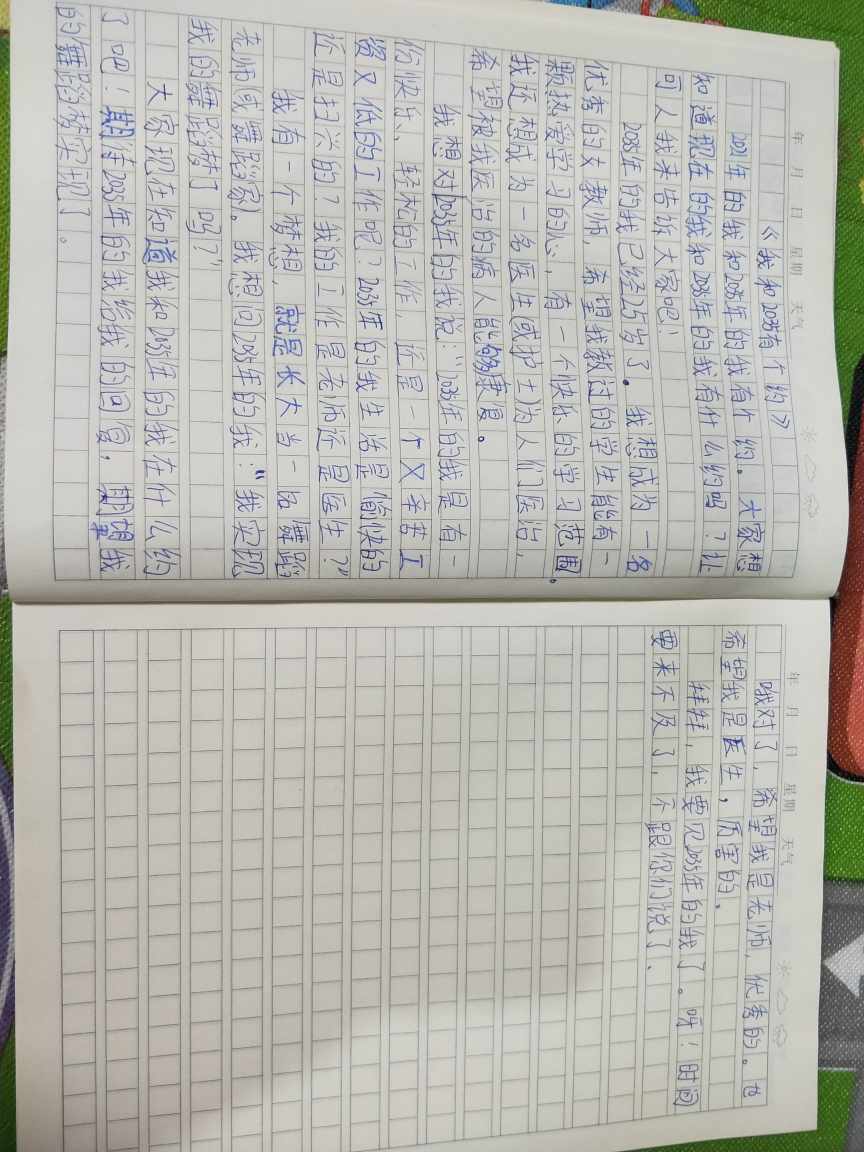 年 月 日 星期 天气
《我和2035有个约》
2021年的我和2035年的我有个约。大家想
知道现在的我和2035年的我有什么约吗？让
可人我来告诉大家吧！
2035年的我已经25岁了。我想成为一名
优秀的女教师，希望我教过的学生能有一
颗热爱学习的心，有一个快乐的学习范围。
我还想成为一名医生(或护士)为人们医治，
希望被我医治的病人能够康复。
我想对2035年的我说："2035年的我是有一
份快乐、轻松的工作，还是一个又辛苦工
资又低的工作呢？2035年的我生活是愉快的
还是扫兴的？我的工作是老师还是医生？"
我有一个梦想，就是长大当一名舞蹈
老师(或舞蹈家)。我想问2035年的我："我实现
我的舞蹈梦了吗？"
大家现在知道我和2035年的我在什么约
了吧！期待2035年的我给我的回复，期望我
的舞蹈梦实现了。
年 月 日 星期 天气
哦对了，希望我是老师，优秀的。也
希望我是医生，厉害的。
拜拜，我要见2035年的我了。呀！时间
要来不及了，不跟你们说了.